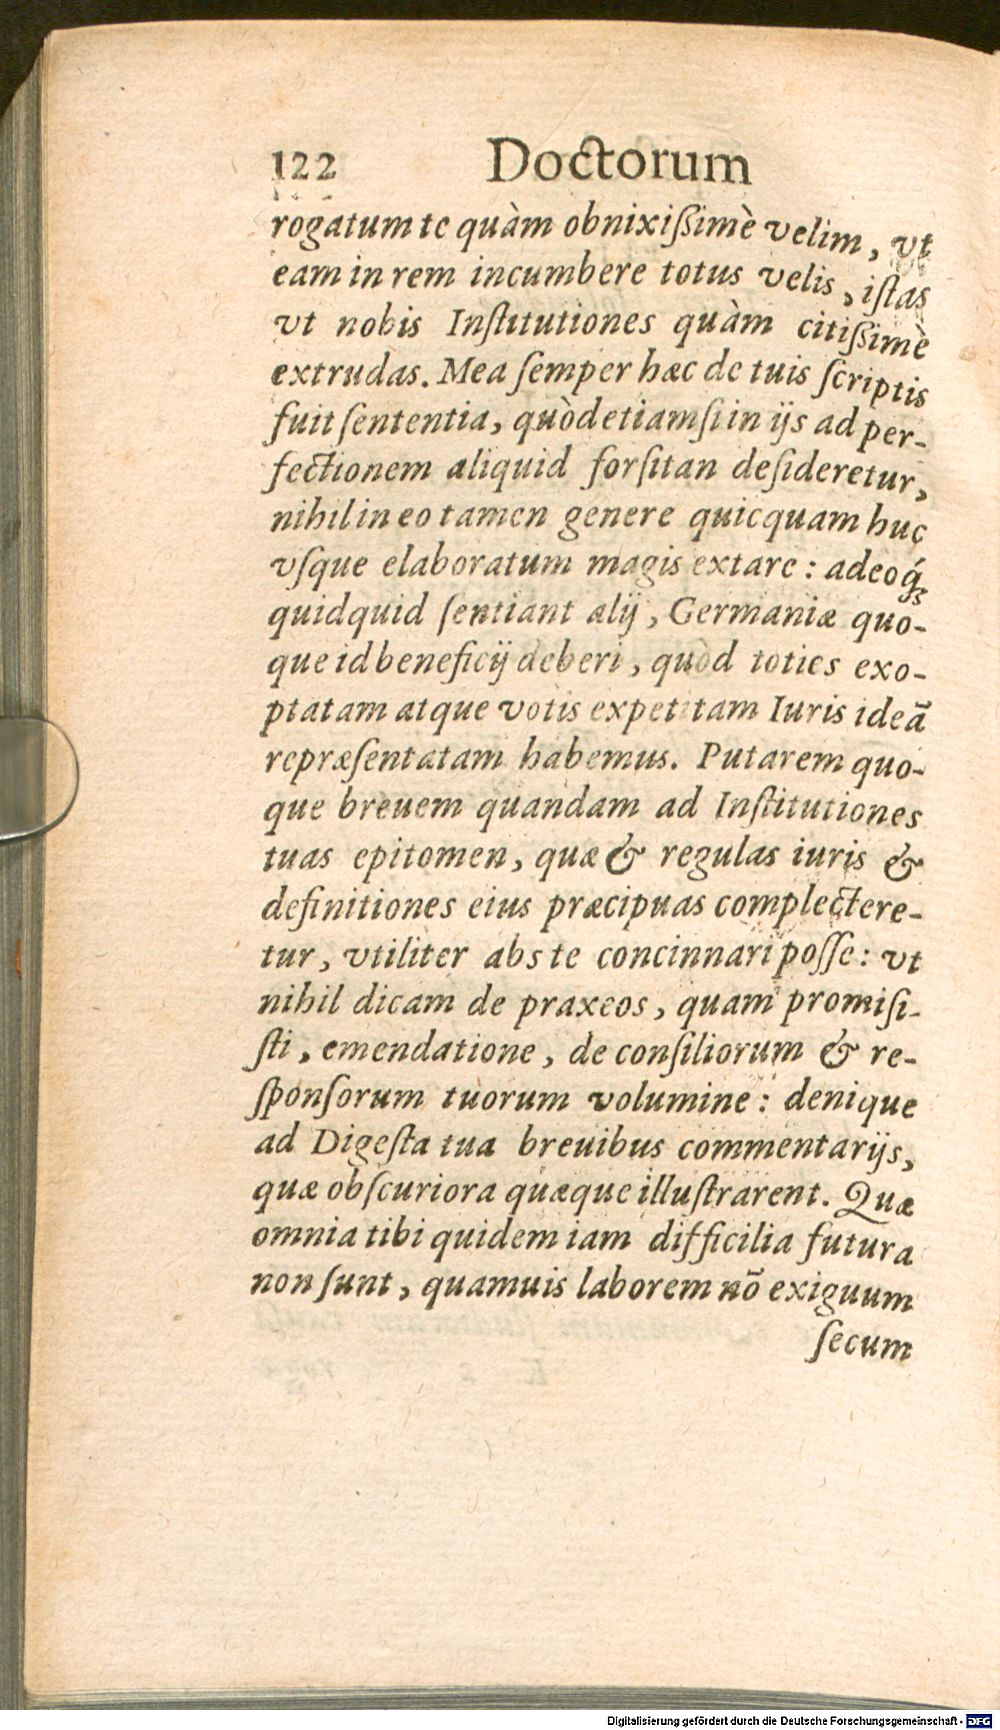 122 Doctorum
rogatum te quàm obnixißimè velim, vt
eam in rem incumbere totus velis, iſtas
vt nobis Inſtitutiones quàm citißimè
extrudas. Mea ſemper hæc de tuis ſcriptis
fuit ſententia, quòd etiamſi in ijs ad per-
fectionem aliquid forſitan deſideretur,
nihil in eo tamen genere quicquam huc
vſque elaboratum magis extare: adeoq́;
quidquid ſentiant alij, Germaniæ quo-
que id beneficij deberi, quòd toties exo-
ptatam atque votis expetitam Iuris ideã
repræſentatam habemus. Putarem quo-
que breuem quandam ad Inſtitutiones
tuas epitomen, quæ & regulas iuris &
definitiones eius præcipuas complectere-
tur, vtiliter abs te concinnari poſſe: vt
nihil dicam de praxeos, quam promiſi-
ſti, emendatione, de conſiliorum & re-
ſponſorum tuorum volumine: denique
ad Digeſta tua breuibus commentarijs,
quæ obſcuriora quæque illuſtrarent. Quæ
omnia tibi quidem iam difficilia futura
non ſunt, quamuis laborem nõ exiguum
ſecum
Digitalisierung gefördert durch die Deutsche Forschungsgemeinschaft - DFG